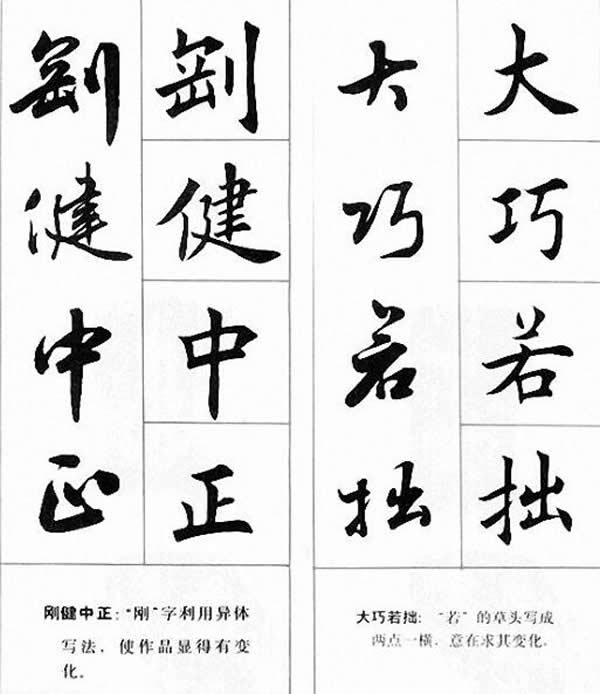 剛健中正
剛健中正
刚健中正：“刚”字利用异体
写法，使作品显得有变
化。
大巧若拙
大巧若拙
大巧若拙：“若”的草头写成
两点一横，意在求其变化。